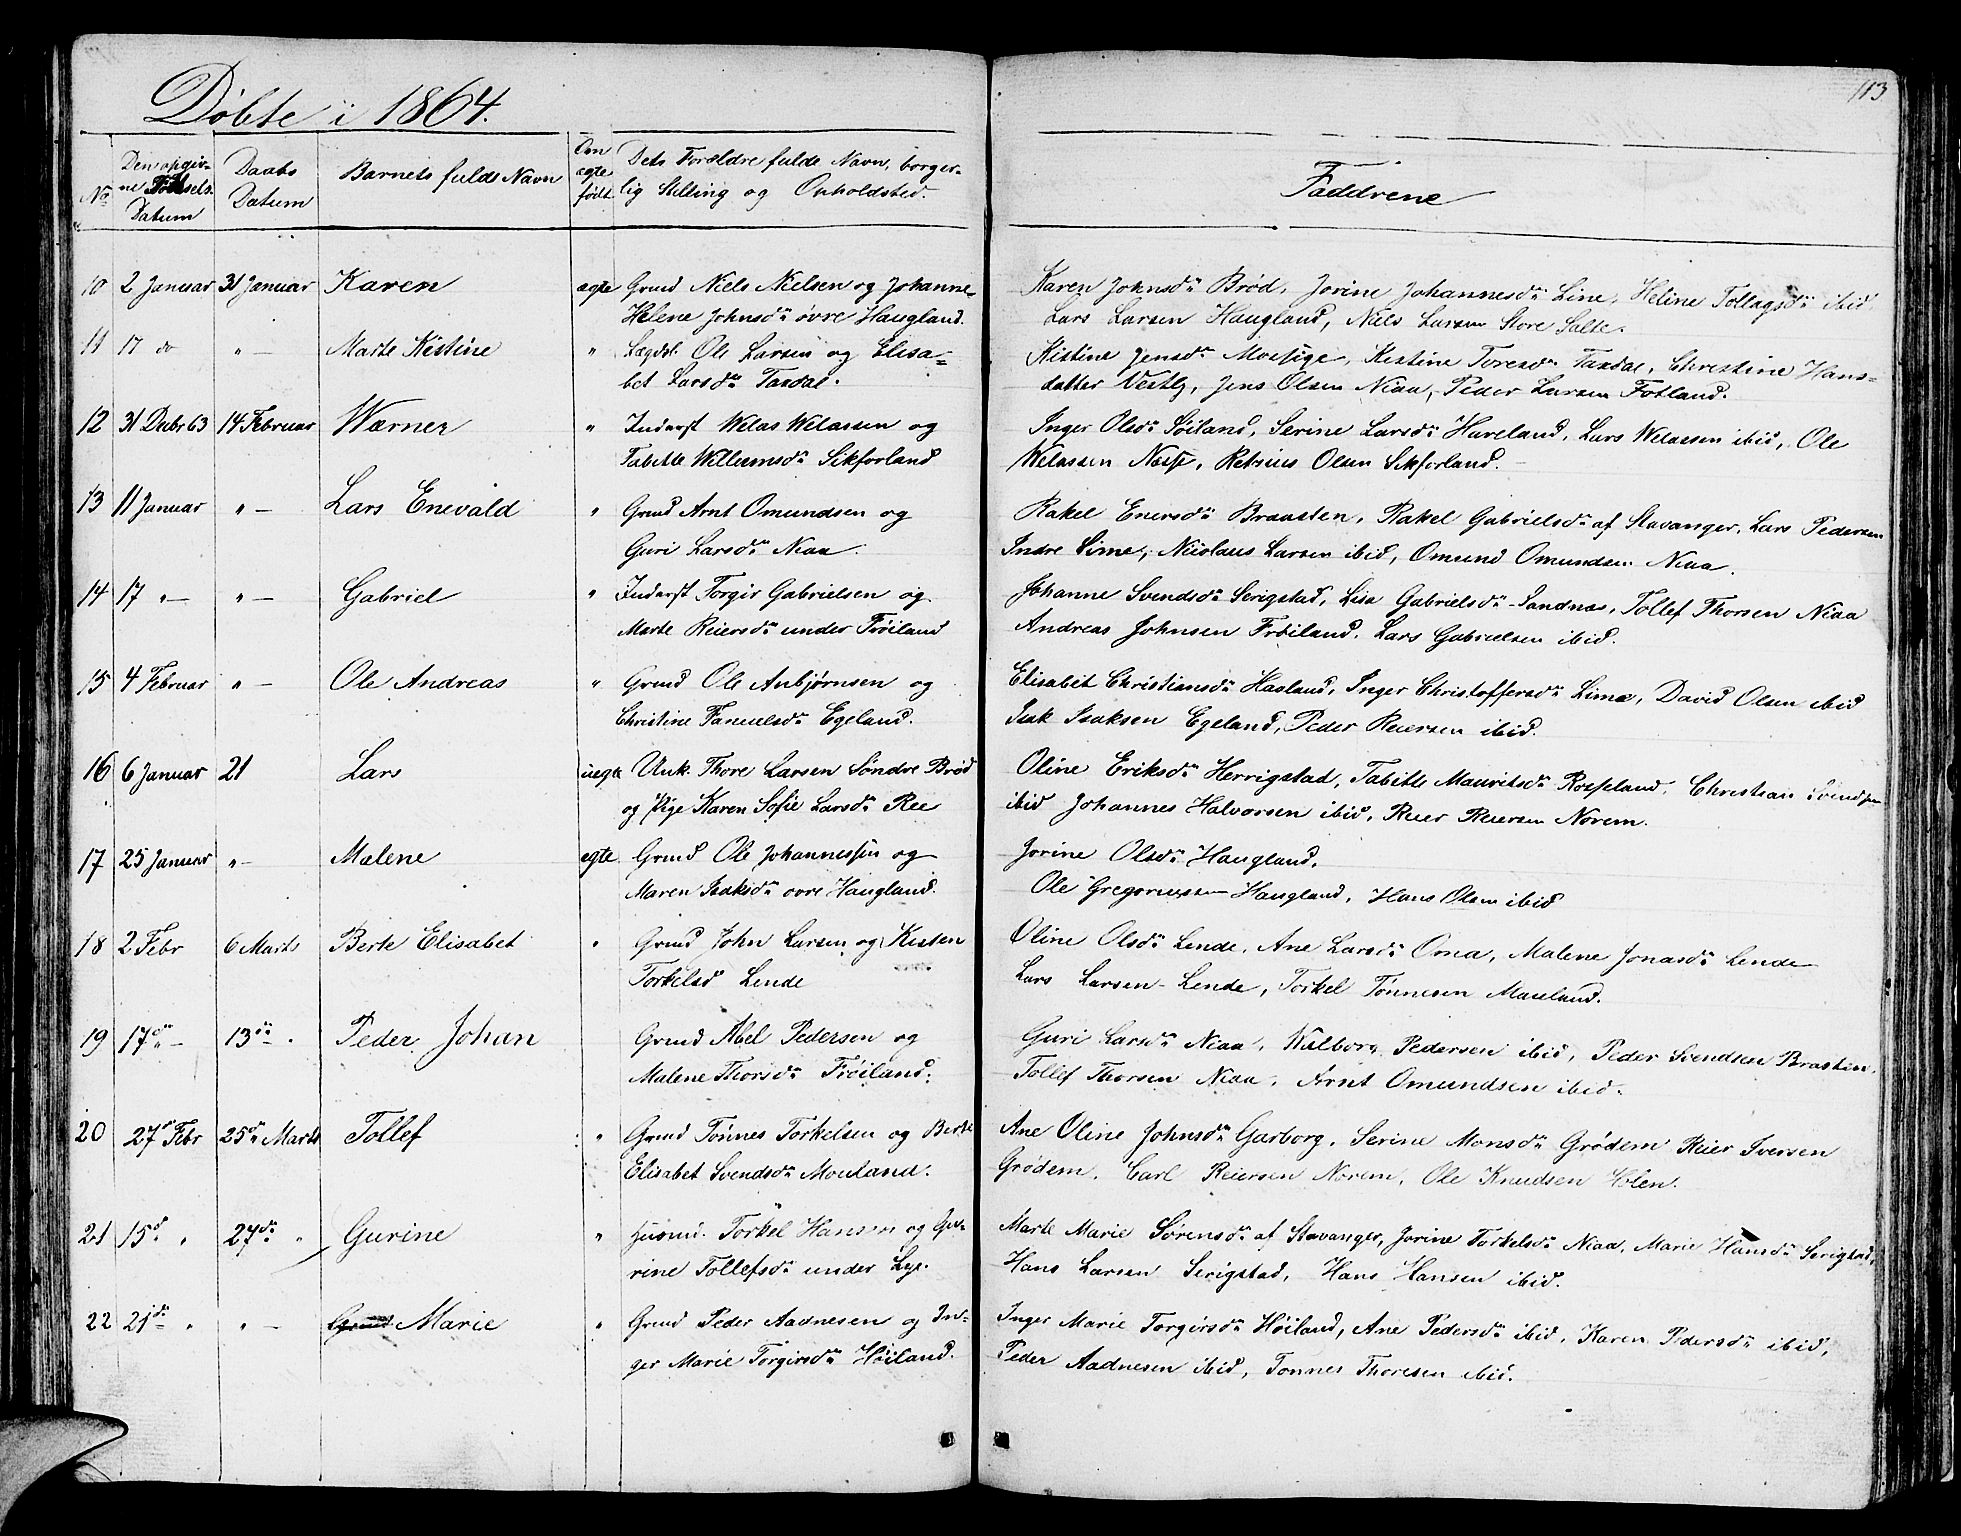 Döbte i 1864.
113
No
Den opgiv-
ne Födsels.
Datum
Daabs
Datum
Barnets fulde Navn
Om
ægte
födt
Dets Forældre fulde Navn, borger-
lig Stilling og Opholdsted.
Faddrene
10 2 Januar 31 Januar Karen ægte Grmd Niels Nielsen og Johanne
Helene Johnsdr övre Haugland.
Karen Johnsdr Bröd, Jorine Johannesdr Line, Heline Tollagsdr ibid,
Lars Larsen Haugland, Niels Larsen Store Salte.
11 17 do " — Marte Kistine " Lægdsl. Ole Larsen og Elisa-
bet Larsdr Taxdal.
Kistine Jensdr Moesige, Kistine Toresdr Taxdal, Christine Hans-
datter Vestly, Jens Olsen Niaa, Peder Larsen Fotland.
12 31 Decbr 63 14 Februar Wærner " Inderst Welas Welassen og
Tabitte Willumsdr Sikforland
Inger Olsdr Söiland, Serine Larsdr Haveland, Lars Welassen ibid, Ole
Welassen Næse, Retsius Olsen Sikforland.
13 11 Januar " — Lars Enevald " Grmd Arnt Omundsen og
Guri Larsdr Niaa.
Rakel Enersdr Braasten, Rakel Gabrielsdr af Stavanger, Lars Pedersen
Indre Lime, Nicolaus Larsen ibid, Omund Omundsen Niaa.
14 17 " — " — Gabriel " Inderst Torgir Gabrielsen og
Marte Reiersdr under Fröiland
Johanne Svendsdr Serigstad, Lisa Gabrielsdr Sandnæs, Tollef Thorsen Niaa
Andreas Johnsen Fröiland, Lars Gabrielsen ibid.
15 4 Februar " — Ole Andreas " Grmd Ole Anbjörnsen og
Christine Fanuelsdr Egeland.
Elisabet Christiansdr Hasland, Inger Christoffersdr Lima, David Olsen ibid
Isak Isaksen Egeland, Peder Reiersen ibid.
16 6 Januar 21 Lars uegte Unk. Thore Larsen Söndre Bröd
og Pige Karen Sofie Larsdr Ree
Oline Eriksdr Herrigstad, Tabitte Mauritsdr Rosseland, Christian Svendsen
ibid Johannes Halvorsen ibid, Reier Reiersen Norem.
17 25 Januar " — Malene egte Grmd Ole Johannessen og
Maren Isaksdr övre Haugland.
Jorine Olsdr Haugland,
Ole Gregoriussen Haugland, Hans Olsen ibid
18 2 Febr 6 Marts Berte Elisabet " Grmd John Larsen og Kisten
Torkelsd Lende
Oline Olsdr Lende, Ane Larsdr Oma, Malene Jonasdr Lende
Lars Larsen Lende, Torkel Tönnesen Maueland.
19 17de — 13de " Peder Johan Grmd Abel Pedersen og
Malene Thorsdr Fröiland.
Guri Larsdr Niaa, Wälborg Pedersen ibid, Peder Svendsen Brasten,
Tollef Thorsen Niaa, Arnt Omundsen ibid.
20 27de Febr 25de Marts Tollef " Grmd Tönnes Torkelsen og Berte
Elisabet Svendsdr Mouland.
Ane Oline Johnsdr Garborg, Serine Monsdr Grödem Reier Iversen
Grödem, Carl Reiersen Norem, Ole Knudsen Holen.
21 15d " 27de " Gurine " Husmd. Torkel Hansen og Gu-
rine Tollefsdr under Lye.
Marte Marie Sörensdr af Stavanger, Jorine Torkelsdr Niaa, Marie Hansdr Serigstad,
Hans Larsen Serigstad, Hans Hansen ibid.
22 21de " " — Marie " Grmd Peder Aadnesen og In-
ger Marie Torgirsdr Höiland.
Inger Marie Torgirsdr Höiland, Ane Pedersdr ibid, Karen Pedersdr ibid,
Peder Aadnesen ibid, Tönnes Thoresen ibid.